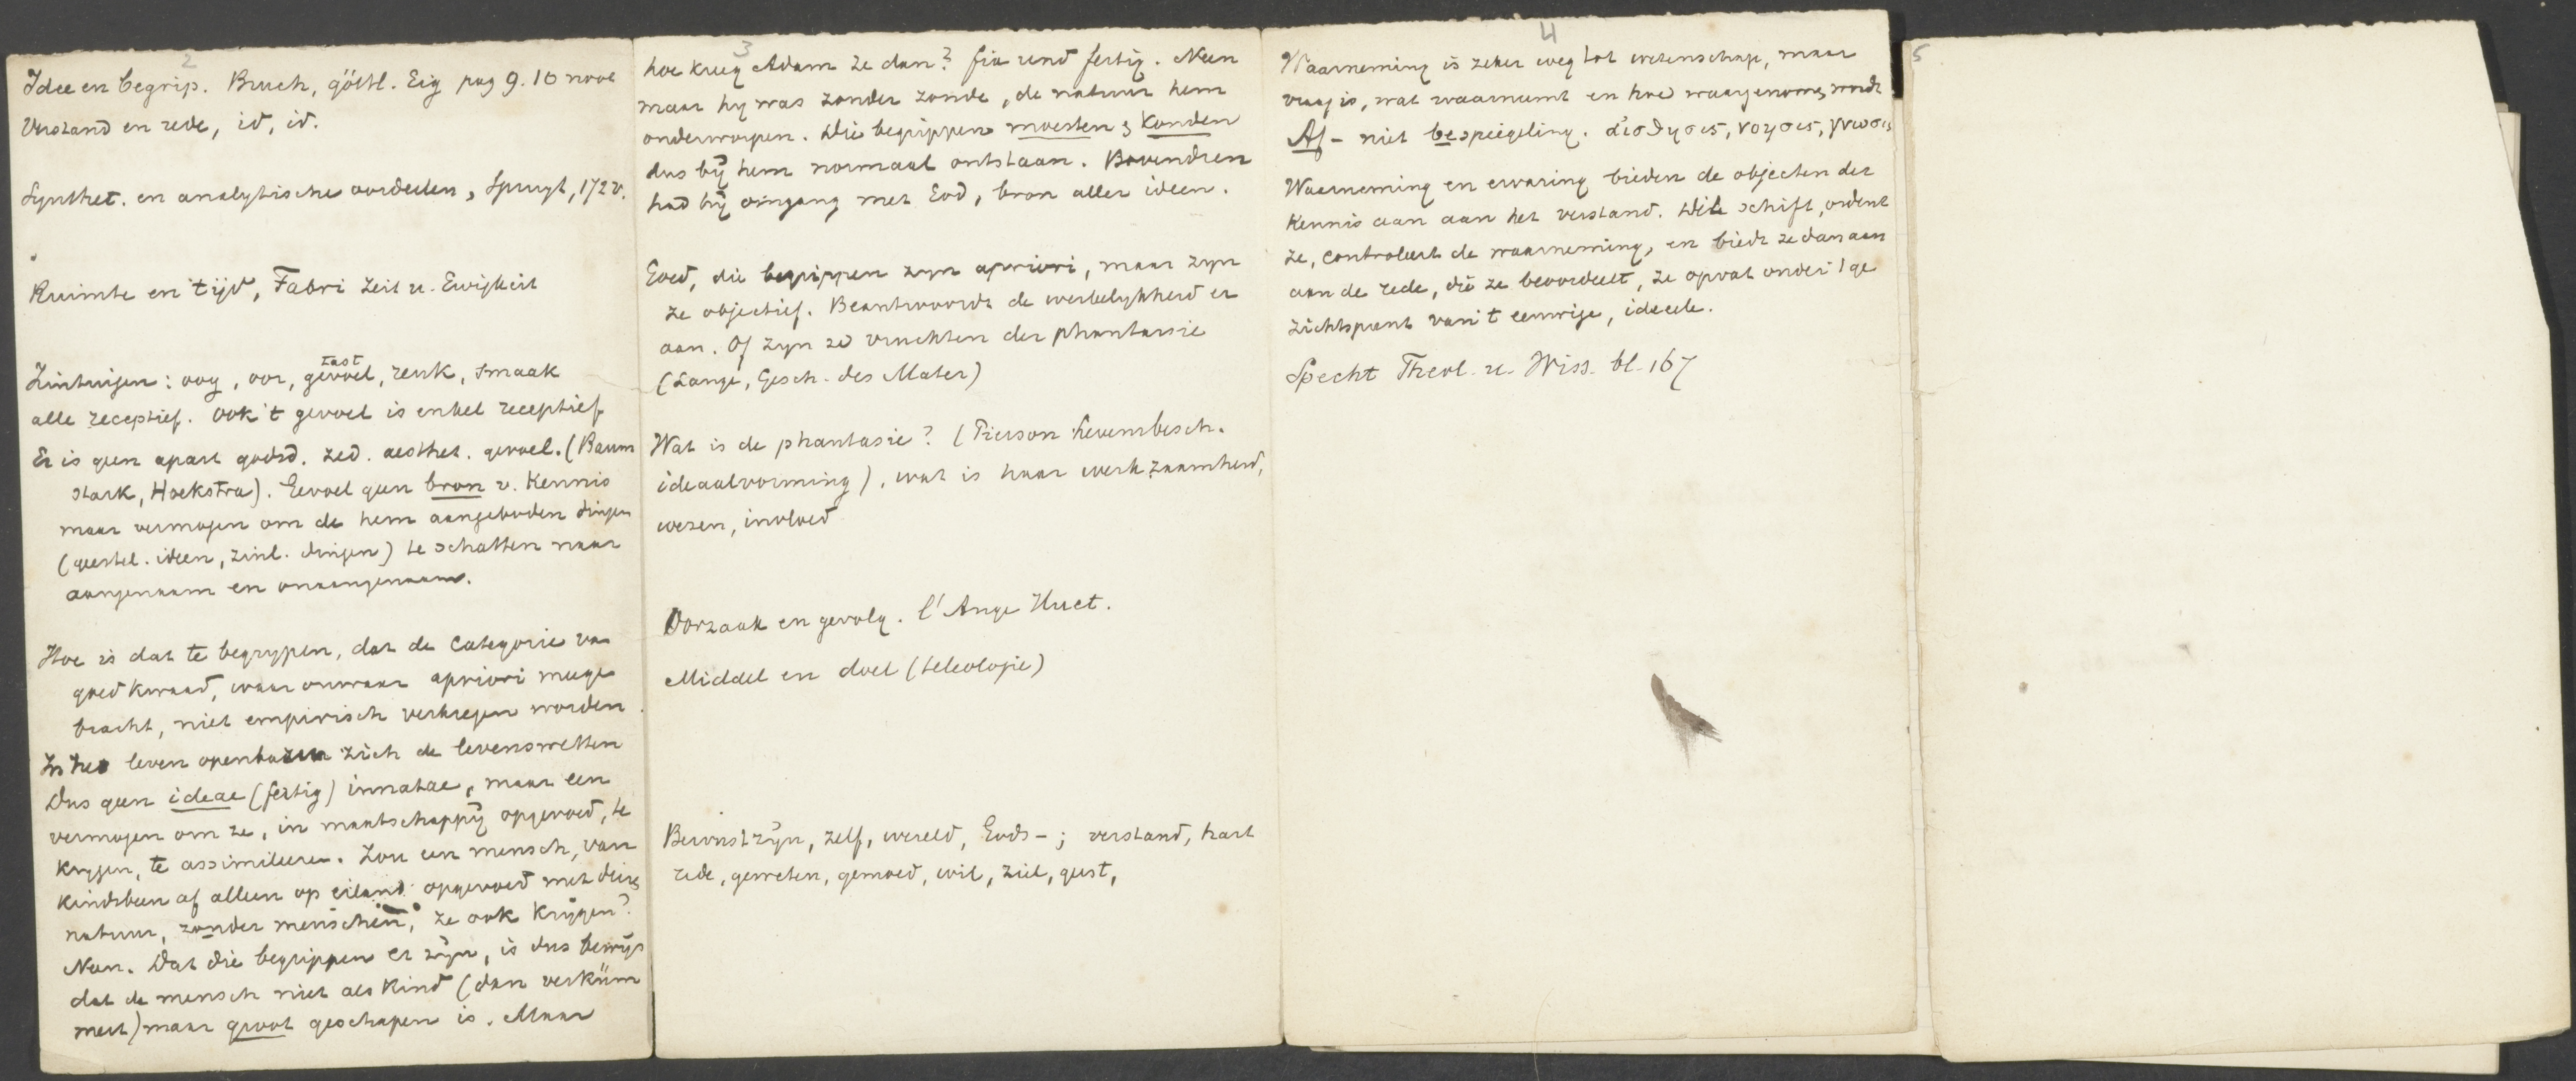 2
Idee en begrip. Bruch, göttl. Eig pag 9. 10 noot
Verstand en rede, id, id.
Synthet. en analytische oordeelen, Spruyt, 172 v.
Ruimte en tijd, Fabri Zeit u. Ewigkeit
tast
Zintuigen: oog, oor, gevoel, reuk, smaak
alle receptief. Ook 't gevoel is enkel receptief
Er is geen apart godsd. zed. aesthet. gevoel. (Baum
stark, Hoekstra). Gevoel geen bron v. Kennis
maar vermogen om de hem aangeboden dingen
(geestel. ideen, zinl. dingen) te schatten naar
aangenaam en onaangenaam.
Hoe is dat te begrypen, dat de categorie van
goed kwaad, waar onwaar apriori meege
bracht, niet empirisch verkregen worden.
In het leven openbaren zich de levenswetten
Dus geen ideae (fertig) innatae, maar een
vermogen om ze, in maatschappij opgevoed, te
krygen, te assimileeren. Zou een mensch, van
kindsbeen af alleen op eiland opgevoed met dier,
natuur, zonder menschen, ze ook krijgen?
Neen. Dat die begrippen er zijn, is dus bewijs
dat de mensch niet als kind (dan verküm
mert) maar groot geschapen is. Maar
3
hoe kreeg Adam ze dan? fix und fertig. Neen
maar hy was zonder zonde, de natuur hem
onderworpen. Die begrippen moesten & konden
dus bij hem normaal ontstaan. Bovendien
had hij omgang met God, bron aller ideen.
Goed, die begrippen zyn apriori, maar zyn
ze objectief. Beantwoordt de werkelykheid er
aan. Of zyn ze vruchten der phantasie
(Lange, Gesch. des Mater)
Wat is de phantasie? (Pierson Levensbesch.
ideaalvorming), wat is haar werkzaamheid,
wezen, invloed
Oorzaak en gevolg. l'Ange Huet.
Middel en doel (teleologie)
Bewustzijn, zelf, wereld, Gods-; verstand, hart
rede, geweten, gemoed, wil, ziel, geest,
4
Waarneming is zeker weg tot wetenschap, maar
vraag is, wat waarneemt en hoe waargenomen wordt
Af- niet bespiegeling. αἰσθησις, νοησις, γνωσις
Waarneming en ervaring bieden de objecten der
Kennis aan aan het verstand. Dit schift, ordent
ze, controleert de waarneming, en biedt ze dan aan
aan de rede, die ze beoordeelt, ze opvat onder 't ge
zichtspunt van 't eeuwige, ideeele.
Specht Theol. u. Wiss. bl. 167
5